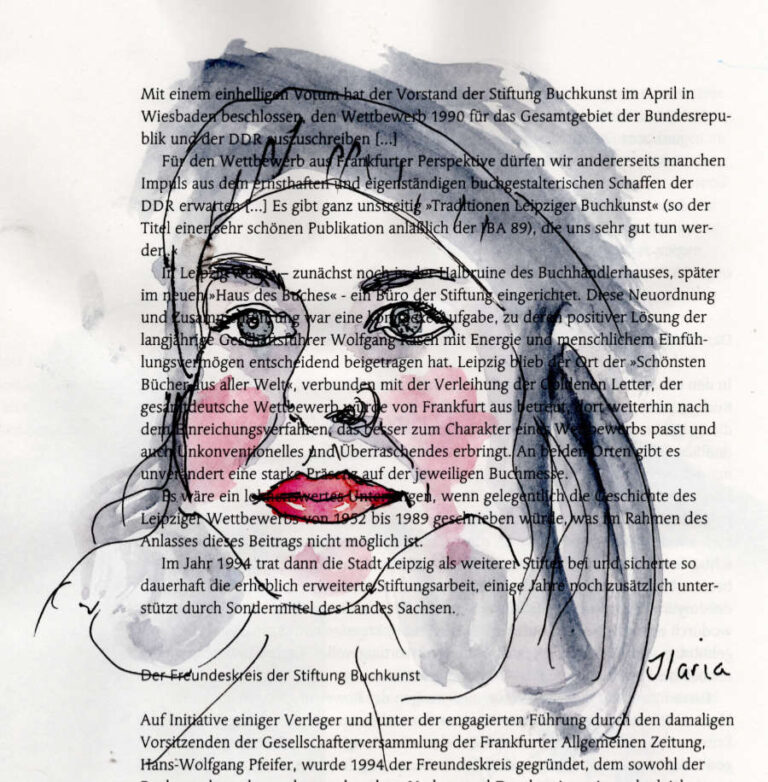 Mit einem einhelligen Votum hat der Vorstand der Stiftung Buchkunst im April in
Wiesbaden beschlossen, den Wettbewerb 1990 für das Gesamtgebiet der Bundesrepu-
blik und der DDR auszuschreiben [...]
Für den Wettbewerb aus Frankfurter Perspektive dürfen wir andererseits manchen
Impuls aus dem ernsthaften und eigenständigen buchgestalterischen Schaffen der
DDR erwarten [...] Es gibt ganz unstreitig »Traditionen Leipziger Buchkunst« (so der
Titel einer sehr schönen Publikation anläßlich der IBA 89), die uns sehr gut tun wer-
den.«
In Leipzig wurde – zunächst noch in der Halbruine des Buchhändlerhauses, später
im neuen »Haus des Buches« - ein Büro der Stiftung eingerichtet. Diese Neuordnung
und war eine Aufgabe, zu deren positiver Lösung der
langjährige Geschäftsführer Wolfgang Rasch mit Energie und menschlichem Einfüh-
lungsvermögen entscheidend beigetragen hat. Leipzig blieb der Ort der »Schönsten
Bücher aus aller Welt«, verbunden mit der Verleihung der Goldenen Letter, der
gesamtdeutsche Wettbewerb wurde von Frankfurt aus betreut, dort weiterhin nach
dem Einreichungsverfahren, das besser zum Charakter eines Wettbewerbs passt und
auch Unkonventionelles und Überraschendes erbringt. An beiden Orten gibt es
unverändert eine starke Präsenz auf der jeweiligen Buchmesse.
Es wäre ein lohnenswertes Unterfangen, wenn gelegentlich die Geschichte des
Leipziger Wettbewerbs von 1952 bis 1989 geschrieben würde, was im Rahmen des
Anlasses dieses Beitrags nicht möglich ist.
Im Jahr 1994 trat dann die Stadt Leipzig als weiterer Stifter bei und sicherte so
dauerhaft die erheblich erweiterte Stiftungsarbeit, einige Jahre noch zusätzlich unter-
stützt durch Sondermittel des Landes Sachsen.
Ilaria
Der Freundeskreis der Stiftung Buchkunst
Auf Initiative einiger Verleger und unter der engagierten Führung durch den damaligen
Vorsitzenden der Gesellschafterversammlung der Frankfurter Allgemeinen Zeitung,
Hans-Wolfgang Pfeifer, wurde 1994 der Freundeskreis gegründet, dem sowohl der